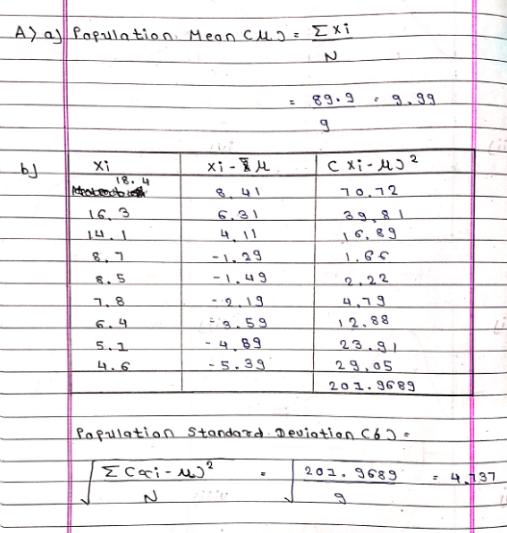 A) a) Population Mean (μ) = Σxi
N
= 89.9 = 9.99
9
b) xi xi - μ (xi - μ)²
18.4 8.41 70.72
16.3 6.31 39.81
14.1 4.11 16.89
8.7 -1.29 1.66
8.5 -1.49 2.22
7.8 -2.19 4.79
6.4 -3.59 12.88
5.1 -4.89 23.91
4.6 -5.39 29.05
201.9689
Population Standard Deviation (6) =
√ Σ(xi - μ)² = √ 201.9689 = 4.737
N 9